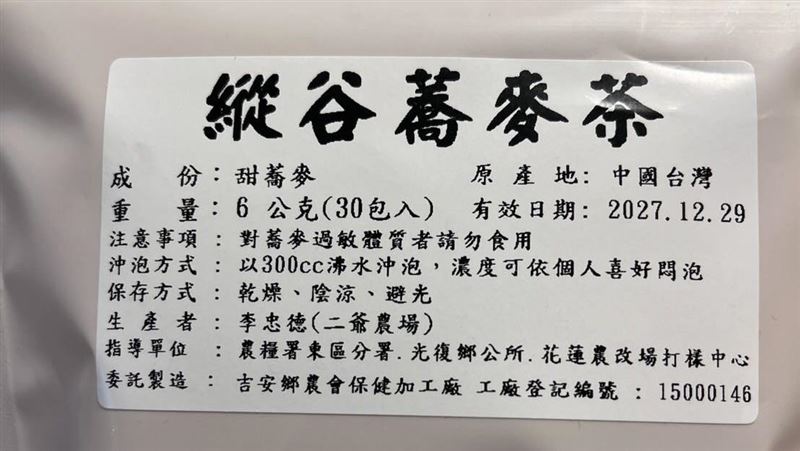 縱谷蕎麥茶
成　　份：甜蕎麥　　原 產 地: 中國台灣
重　　量：6 公克(30包入)　有效日期: 2027.12.29
注意事項 : 對蕎麥過敏體質者請勿食用
沖泡方式 : 以300cc沸水沖泡，濃度可依個人喜好悶泡
保存方式 : 乾燥、陰涼、避光
生 產 者 : 李忠德(二爺農場)
指導單位 : 農糧署東區分署.光復鄉公所.花蓮農改場打樣中心
委託製造 : 吉安鄉農會保健加工廠 工廠登記編號 : 15000146